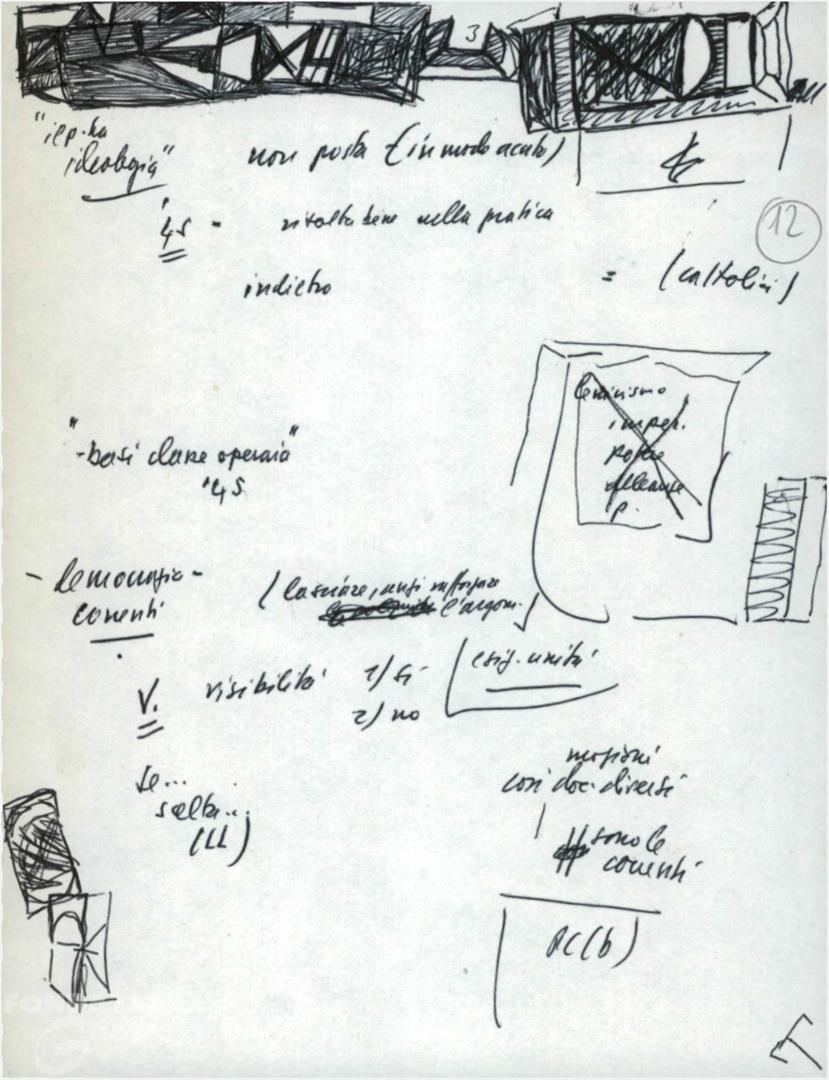 3
"il p. ha
ideologia"
non posta (in modo acuto)
12
'45 - risolta bene nella pratica
indietro = (cattolici)
leninismo
imper.
potere
alleanze
p.
"-basi classe operaia"
'45
- democrazia -
correnti
(lasciare, anzi rafforzare
l'argom.
V. visibilità 1) sì
2) no
esig. unità
mozioni
così doc. diversi
se...
scelta...
(LL)
sono le
correnti
PC(b)
T